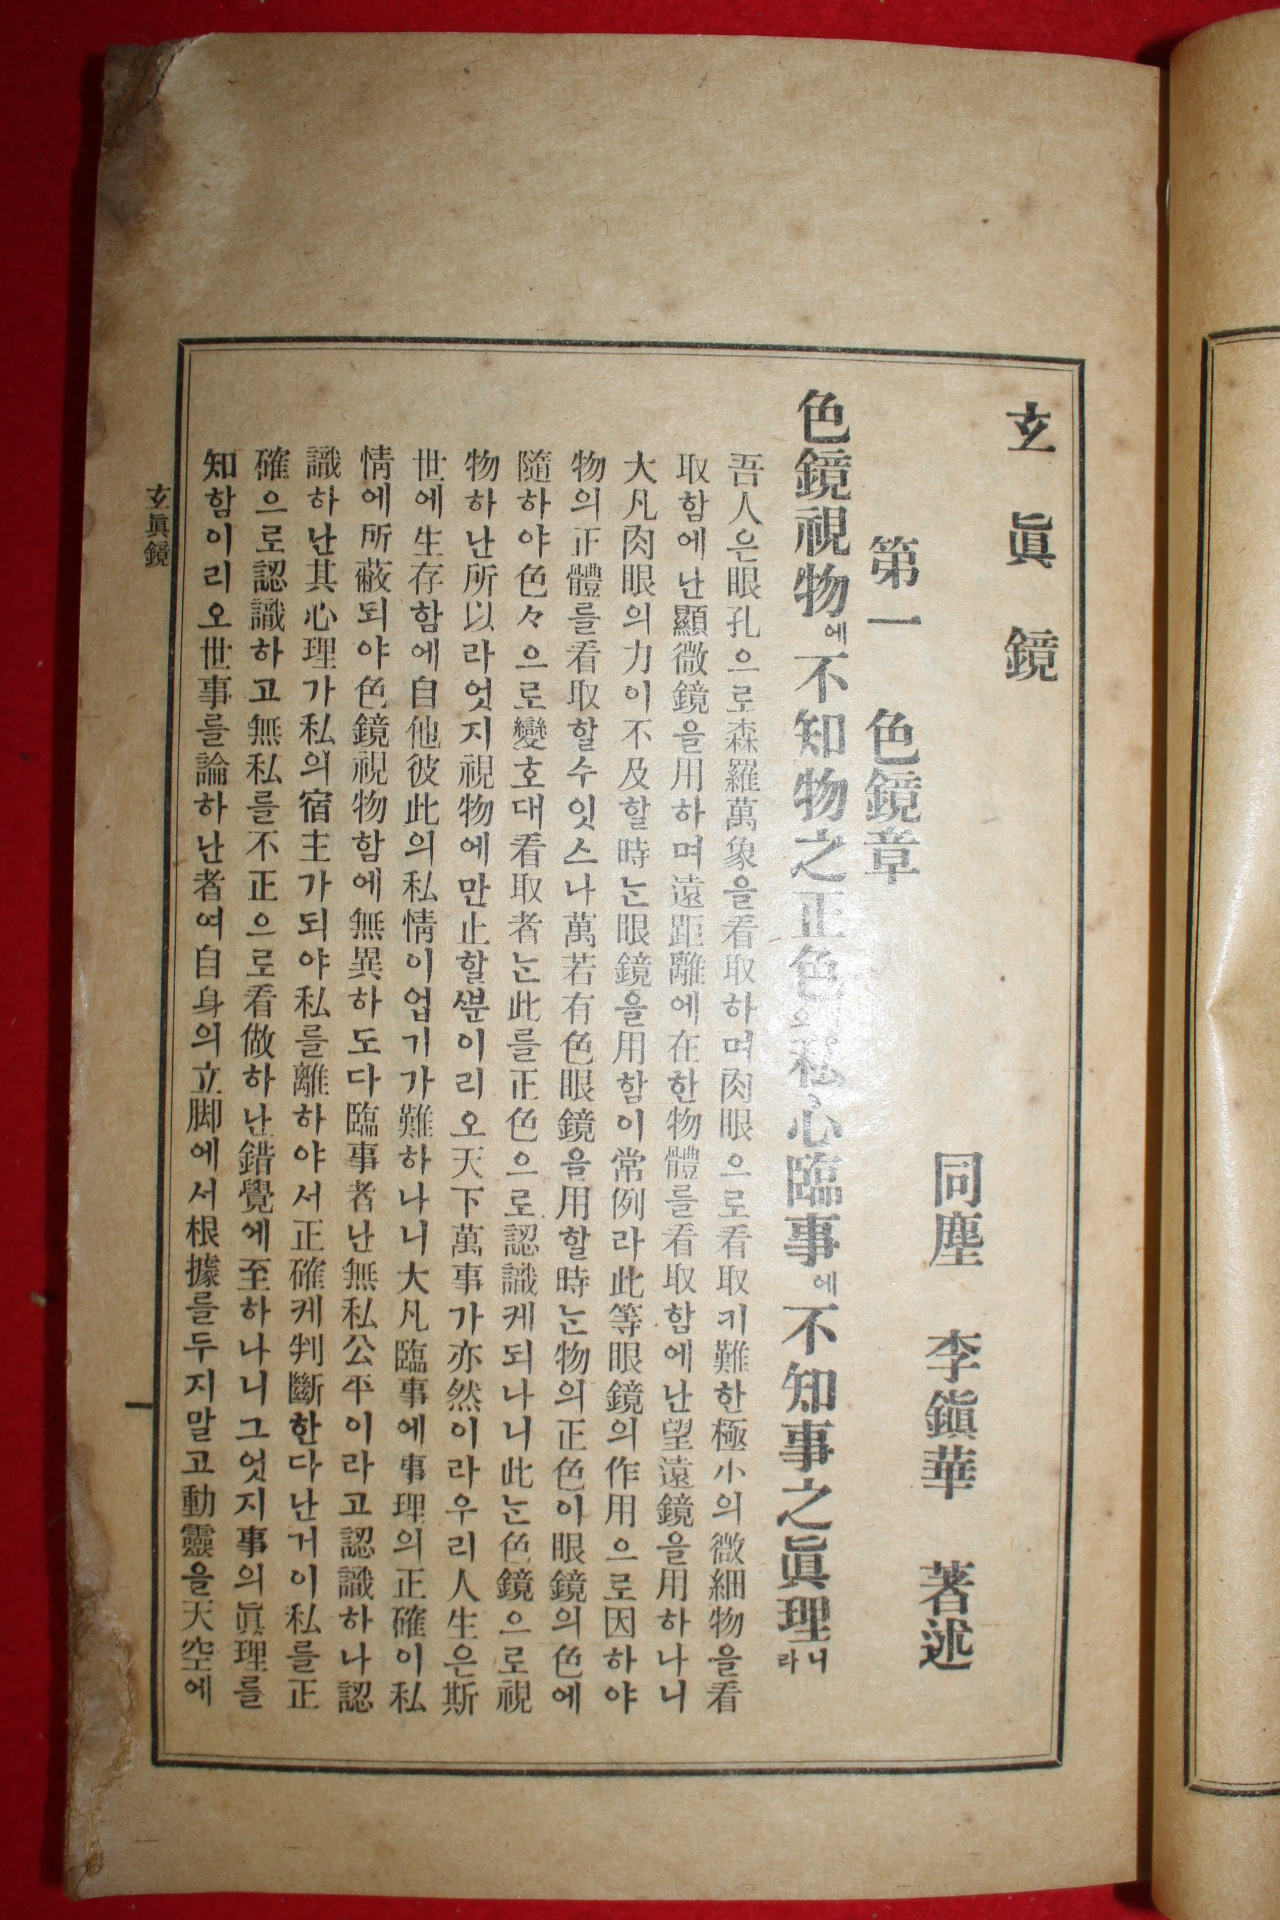 玄眞鏡
同塵 李鎭華 著述
第一 色鏡章
色鏡視物에不知物之正色이오私心臨事에不知事之眞理라니
吾人은眼孔으로森羅萬象을看取하며肉眼으로看取키難한極小의微細物을看
取함에난顯微鏡을用하며遠距離에在한物體를看取함에난望遠鏡을用하나니
大凡肉眼의力이不及할時는眼鏡을用함이常例라此等眼鏡의作用으로因하야
物의正體를看取할수잇스나萬若有色眼鏡을用할時는物의正色이眼鏡의色에
隨하야色々으로變호대看取者는此를正色으로認識케되나니此는色鏡으로視
物하난所以라엇지視物에만止할ᄲᅮᆫ이리오天下萬事가亦然이라우리人生은斯
世에生存함에自他彼此의私情이업기가難하나니大凡臨事에事理의正確이私
情에所蔽되야色鏡視物함에無異하도다臨事者난無私公平이라고認識하나認
識하난其心理가私의宿主가되야私를離하야서正確케判斷한다난거이私를正
確으로認識하고無私를不正으로看做하난錯覺에至하나니그엇지事의眞理를
知함이리오世事를論하난者여自身의立脚에서根據를두지말고動靈을天空에
玄眞鏡